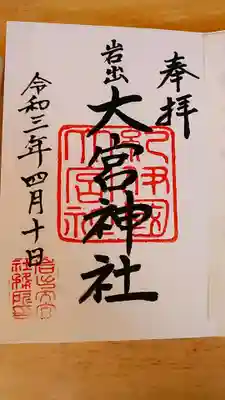 奉拝
岩出
大宮神社
令和三年四月十日